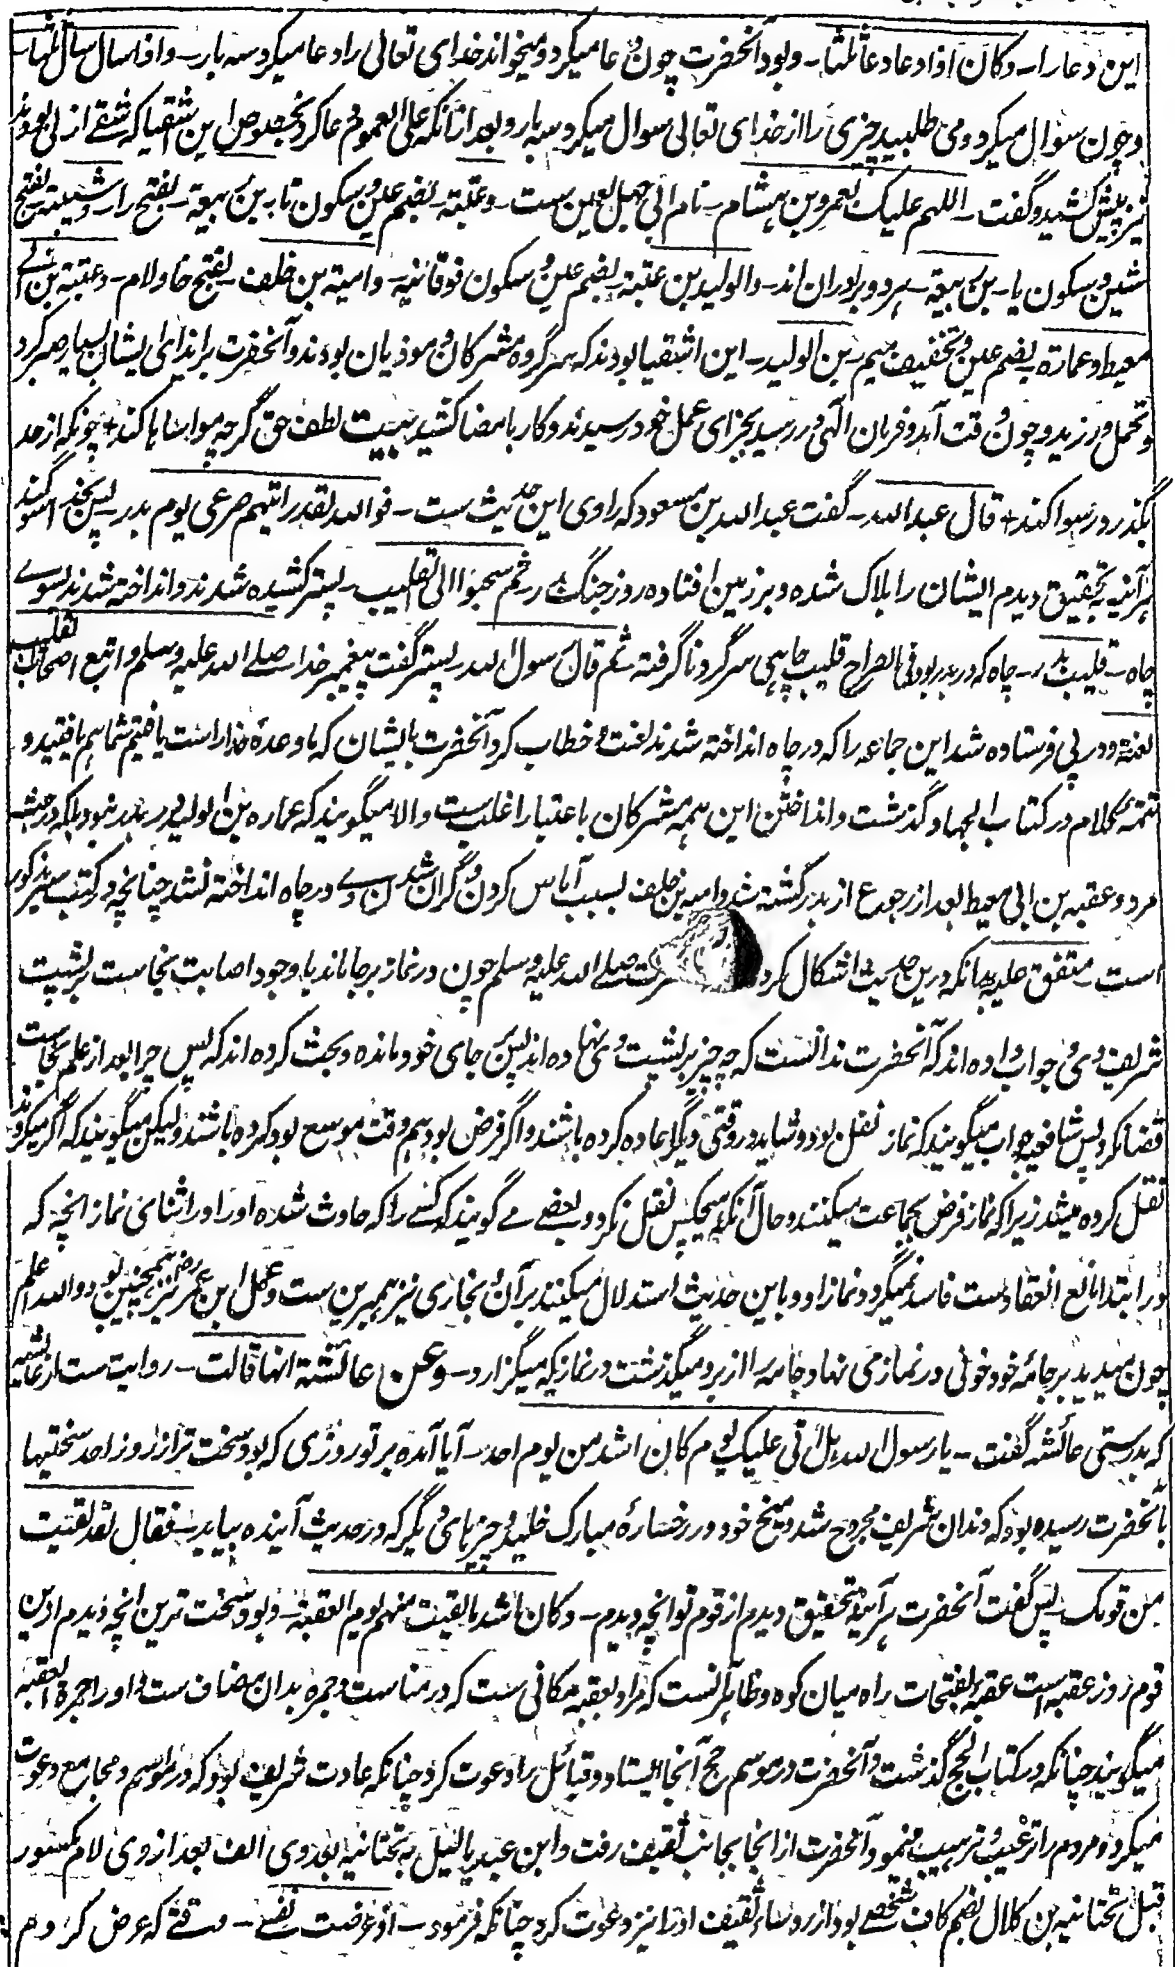 این دعا را ـ وکان اذا دعا دعا ثلثا ـ وبود آنحضرت چون دعا میکرد و میخواند خدای تعالی را دعا میکرد سه بار ـ واذا سال سال ثلثا ـ
و چون سوال میکرد و می طلبید چیزی را از خدای تعالی سوال میکرد سه بار و بعد از آنکه علی العموم دعا کرد بخصوص این اشقیا که شقی‌تر از
نیز پیش کشید و گفت ـ اللهم علیک بعمرو بن هشام ـ نام ابی جهل لعین ست ـ وعتبة ـ بضم عین و سکون تا ـ بن ربیعة ـ بفتح را ـ وشیبة ـ بفتح
شین و سکون یا ـ بن ربیعة ـ هر دو برادران اند ـ والولید بن عتبة ـ بضم عین و سکون فوقانیه ـ وامیة بن خلف ـ بفتح خا و لام ـ وعقبة بن ابی
معیط وعمارة ـ بضم عین و تخفیف میم ـ بن الولید ـ این اشقیا بودند که سر گروه مشرکان و موذیان بودند و آنحضرت بر ایذای ایشان بسیار صبر کرد
و تحمل ورزید و چون وقت آمد و فرمان الٰهی در رسید بجزای عمل خود رسیدند و کار بامضا کشید بیت لطف حق گرچه مواساها کند + چونکه از حد
بگذرد رسوا کند + قال عبد الله ـ گفت عبد الله بن مسعود که راوی این حدیث ست ـ فوالله لقد رایتهم صرعی یوم بدر ـ پس بخدا سوگند
هرآئینه به تحقیق دیدم ایشان را هلاک شده و بر زمین افتاده روز جنگ بدر ـ ثم سحبوا الی القلیب ـ پستر کشیده شدند و انداخته شدند بسوے
چاه ـ قلیب بدر ـ چاه که در بدر بود فی الصراح قلیب چاهی سرگرد ناگرفته ثم قال رسول الله ـ پستر گفت پیغمبر خدا صلے الله علیه وسلم واتبع اصحاب القلیب
لعنة و در پی فرستاده شد این جماعه را که در چاه انداخته شدند لعنت و خطاب کرد آنحضرت بایشان که ما وعدهٔ خدا راست یافتیم شما هم یافتید و
تتمهٔ کلام در کتاب الجهاد گذشت و انداختن این همه مشرکان باعتبار اغلب ست والا میگویند که عماره بن الولید در بدر نبود بلکه در حبشه
مرد و عقبه بن ابی معیط بعد از رجوع از بدر کشته شد و امیه بن خلف بسبب آماس کردن و گران شدن وے در چاه انداخته نشد چنانچه در کتب سیر مذکور
است ـ متفق علیه بدانکه درین حدیث اشکال کرده حضرت صلے الله علیه وسلم چون در نماز بر جا ماند با وجود اصابت نجاست بر پشت
شریف وی و جواب داده اند که آنحضرت ندانست که چه چیز بر پشت وی نهاده اند پس بر جای خود مانده و بحث کرده اند که پس چرا بعد از علم نجاست
قضا نکرد پس شافعیه جواب میگویند که نماز نفل بود و شاید در وقتی دیگر اعاده کرده باشند و اگر فرض بود هم وقت موسع بود کرده باشند ولیکن میگویند که اگر میکردند
نقل کرده میشد زیرا که نماز فرض بجماعت میکنند و حال آنکه هیچکس نقل نکرد و بعضے مے گویند که کسے را که حادث شده او را در اثنای نماز آنچه که
در ابتدا مانع انعقادست فاسد نمیگردد نماز او و باین حدیث استدلال میکنند بر آن و بخاری نیز همبرین ست و عمل ابن عمر رض نیز همچنین بود والله اعلم
چون میدید بر جامهٔ خود خونی در نماز می نهاد جامه را از بر و میگذشت در نمازیکه میگزارد ـ وعن عائشة انها قالت ـ روایت ست از عائشه
که بدرستی عائشه گفت ـ یا رسول الله هل اتی علیک یوم کان اشد من یوم احد ـ آیا آمده بر تو روزی که بود سخت تر از روز احد سختیها
بآنحضرت رسیده بود که دندان شریف مجروح شد و میخ خود در رخسارهٔ مبارک خلید و چیزهای دیگر که در حدیث آینده بیاید ـ فقال لقد لقیت
من قومک ـ پس گفت آنحضرت هرآئینه بتحقیق دیدم از قوم تو آنچه دیدم ـ وکان اشد ما لقیت منهم یوم العقبة ـ و بود سخت ترین آنچه دیدم از این
قوم روز عقبه است عقبه بفتحات راه میان کوه و ظاهر آنست که مراد بعقبه مکانی ست که در مناست و جمره بدان مضاف ست و او را جمرة العقبه
میگویند چنانکه در کتاب الحج گذشت و آنحضرت در موسم حج آنجا ایستاد و قبائل را دعوت کرد چنانکه عادت شریف بود که در مواسم و مجامع دعوت
میکرد و مردم را ترغیب و ترهیب مینمود آنحضرت از انجا بجانب ثقیف رفت و ابن عبد یالیل به تحتانیه بعد وی الف بعد از وی لام مکسور
قبل تحتانیه بن کلال بضم کاف شخصے بود از رؤساء ثقیف او را نیز دعوت کرد چنانکه فرمود ـ اذ عرضت نفسے ـ وقتے که عرض کردم